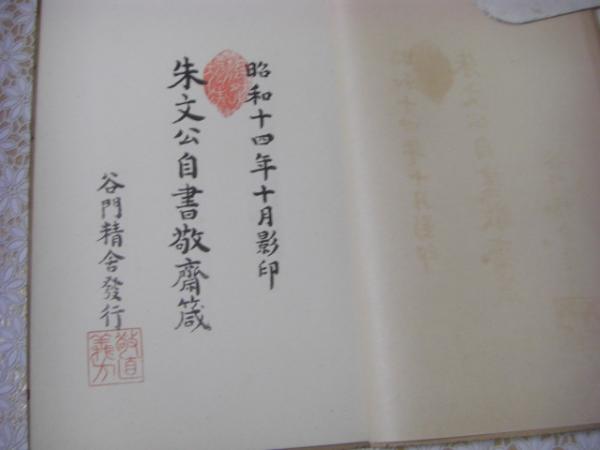 昭和十四年十月影印
朱文公自書敬齋箴
谷門精舎發行
敬直
義方